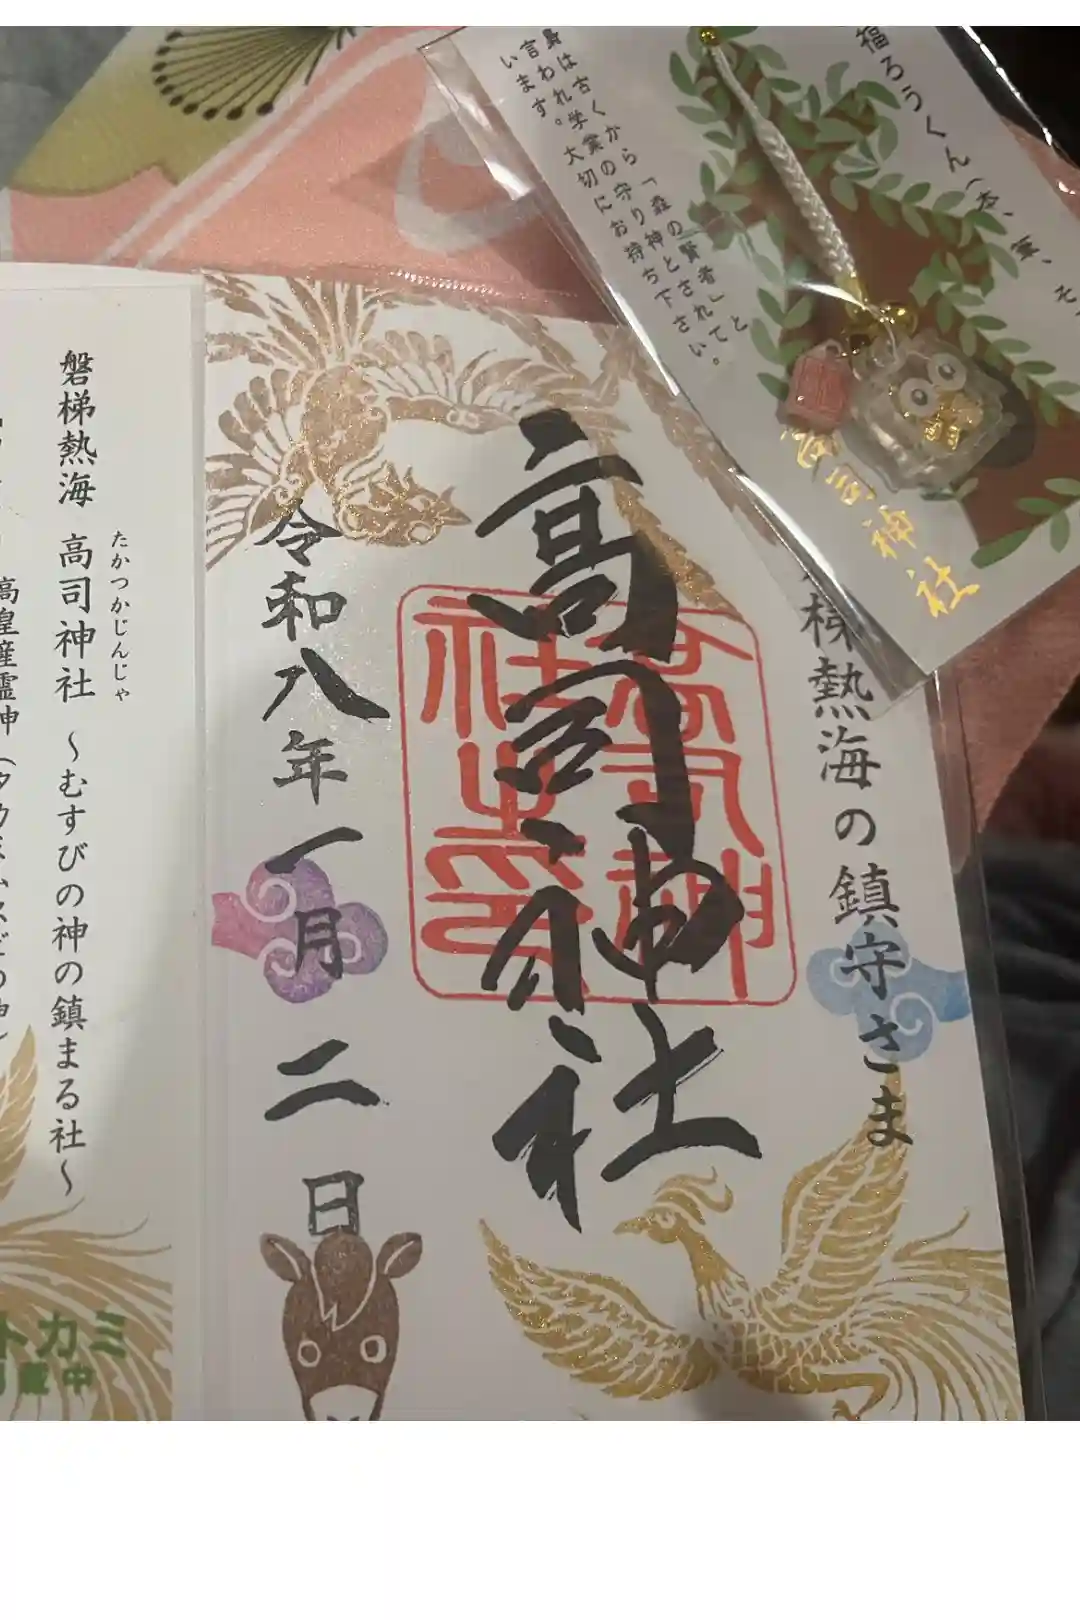 福ろうくん（本、革、そ
身は古くから「森の賢者」と
言われ学業の守り神とされて
います。大切にお持ち下さい。
高司神社
梯熱海の鎮守さま
高司神社
高司神
社之印
令和八年一月二日
たかつかじんじゃ
磐梯熱海 高司神社 〜むすびの神の鎮まる社〜
高皇産霊神（タカミムスビの神）
トカミ
掲載中